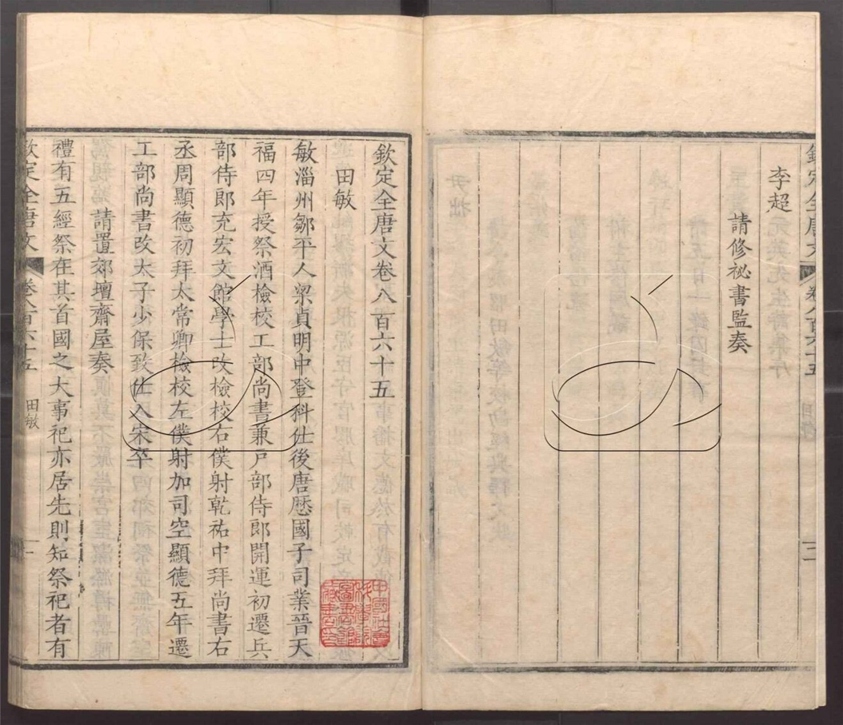 欽定全唐文 卷八百六十五
李超
請修祕書監奏
欽定全唐文卷八百六十五
田敏
敏淄州鄒平人梁貞明中登科仕後唐歷國子司業晉天
福四年授祭酒檢校工部尚書兼戶部侍郎開運初遷兵
部侍郎充宏文館學士改檢校右僕射乾祐中拜尚書右
丞周顯德初拜太常卿檢校左僕射加司空顯德五年遷
工部尚書改太子少保致仕入宋卒
請置郊壇齋屋奏
禮有五經祭在其首國之大事祀亦居先則知祭祀者有
欽定全唐文 卷八百六十五 田敏 一